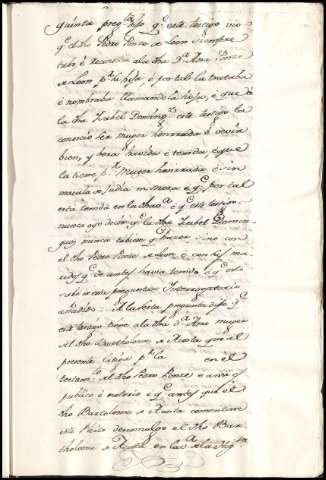 quinta preg.ta dijo q.e este testigo vio
q.e el dho Pedro Ponze de Leon siempre
tubo, è reconocia ala dha D.a Ana Ponce
de Leon p.r su hija è por tal la trataba
è nombraba llamandola hija, è que à
la dha Isabel Doming.z este testigo la
conocio ser muger honrrada è vevia
bien, y hera havida è tenida, è que
la tiene p.r Muger honrrada è sin
macula de Judia ni Mora è q.e por tal
era tenida en la è q.e este testigo
nunca oyo decir q.e la dha Isabel Domin-
guez nunca tubiese q.e hacer sino con
el dho Pedro Ponze de Leon, è con su ma-
rido q.e de antes havia tenido è q.e esto
sabe de esta pregunta Interrogatorio
añadido = A la sexta pregunta dijo q.e
este testigo tiene ala dha D.a Ana muger
del dho Bartholome de Acosta que al
presente litiga p.r la en el
testam.to del dho Pedro Ponze
publico è notorio è q.e antes que el
dho Bartolome de Acosta comenzare
este Pleito el dho Bar-
tholome de Acosta en la